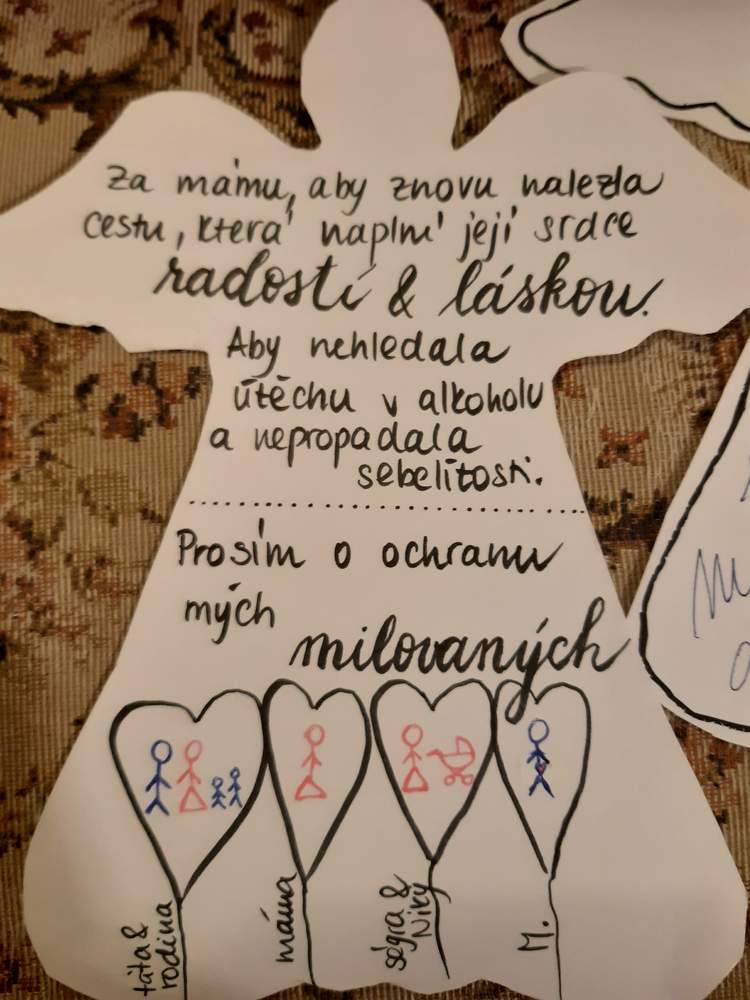 Za mámu, aby znovu nalezla
cestu, která naplní její srdce
radostí & láskou.
Aby nehledala
útěchu v alkoholu
a nepropadala
sebelítosti.
Prosím o ochranu
mých
milovaných
táta &
rodina
máma
ségra &
Niky
M.